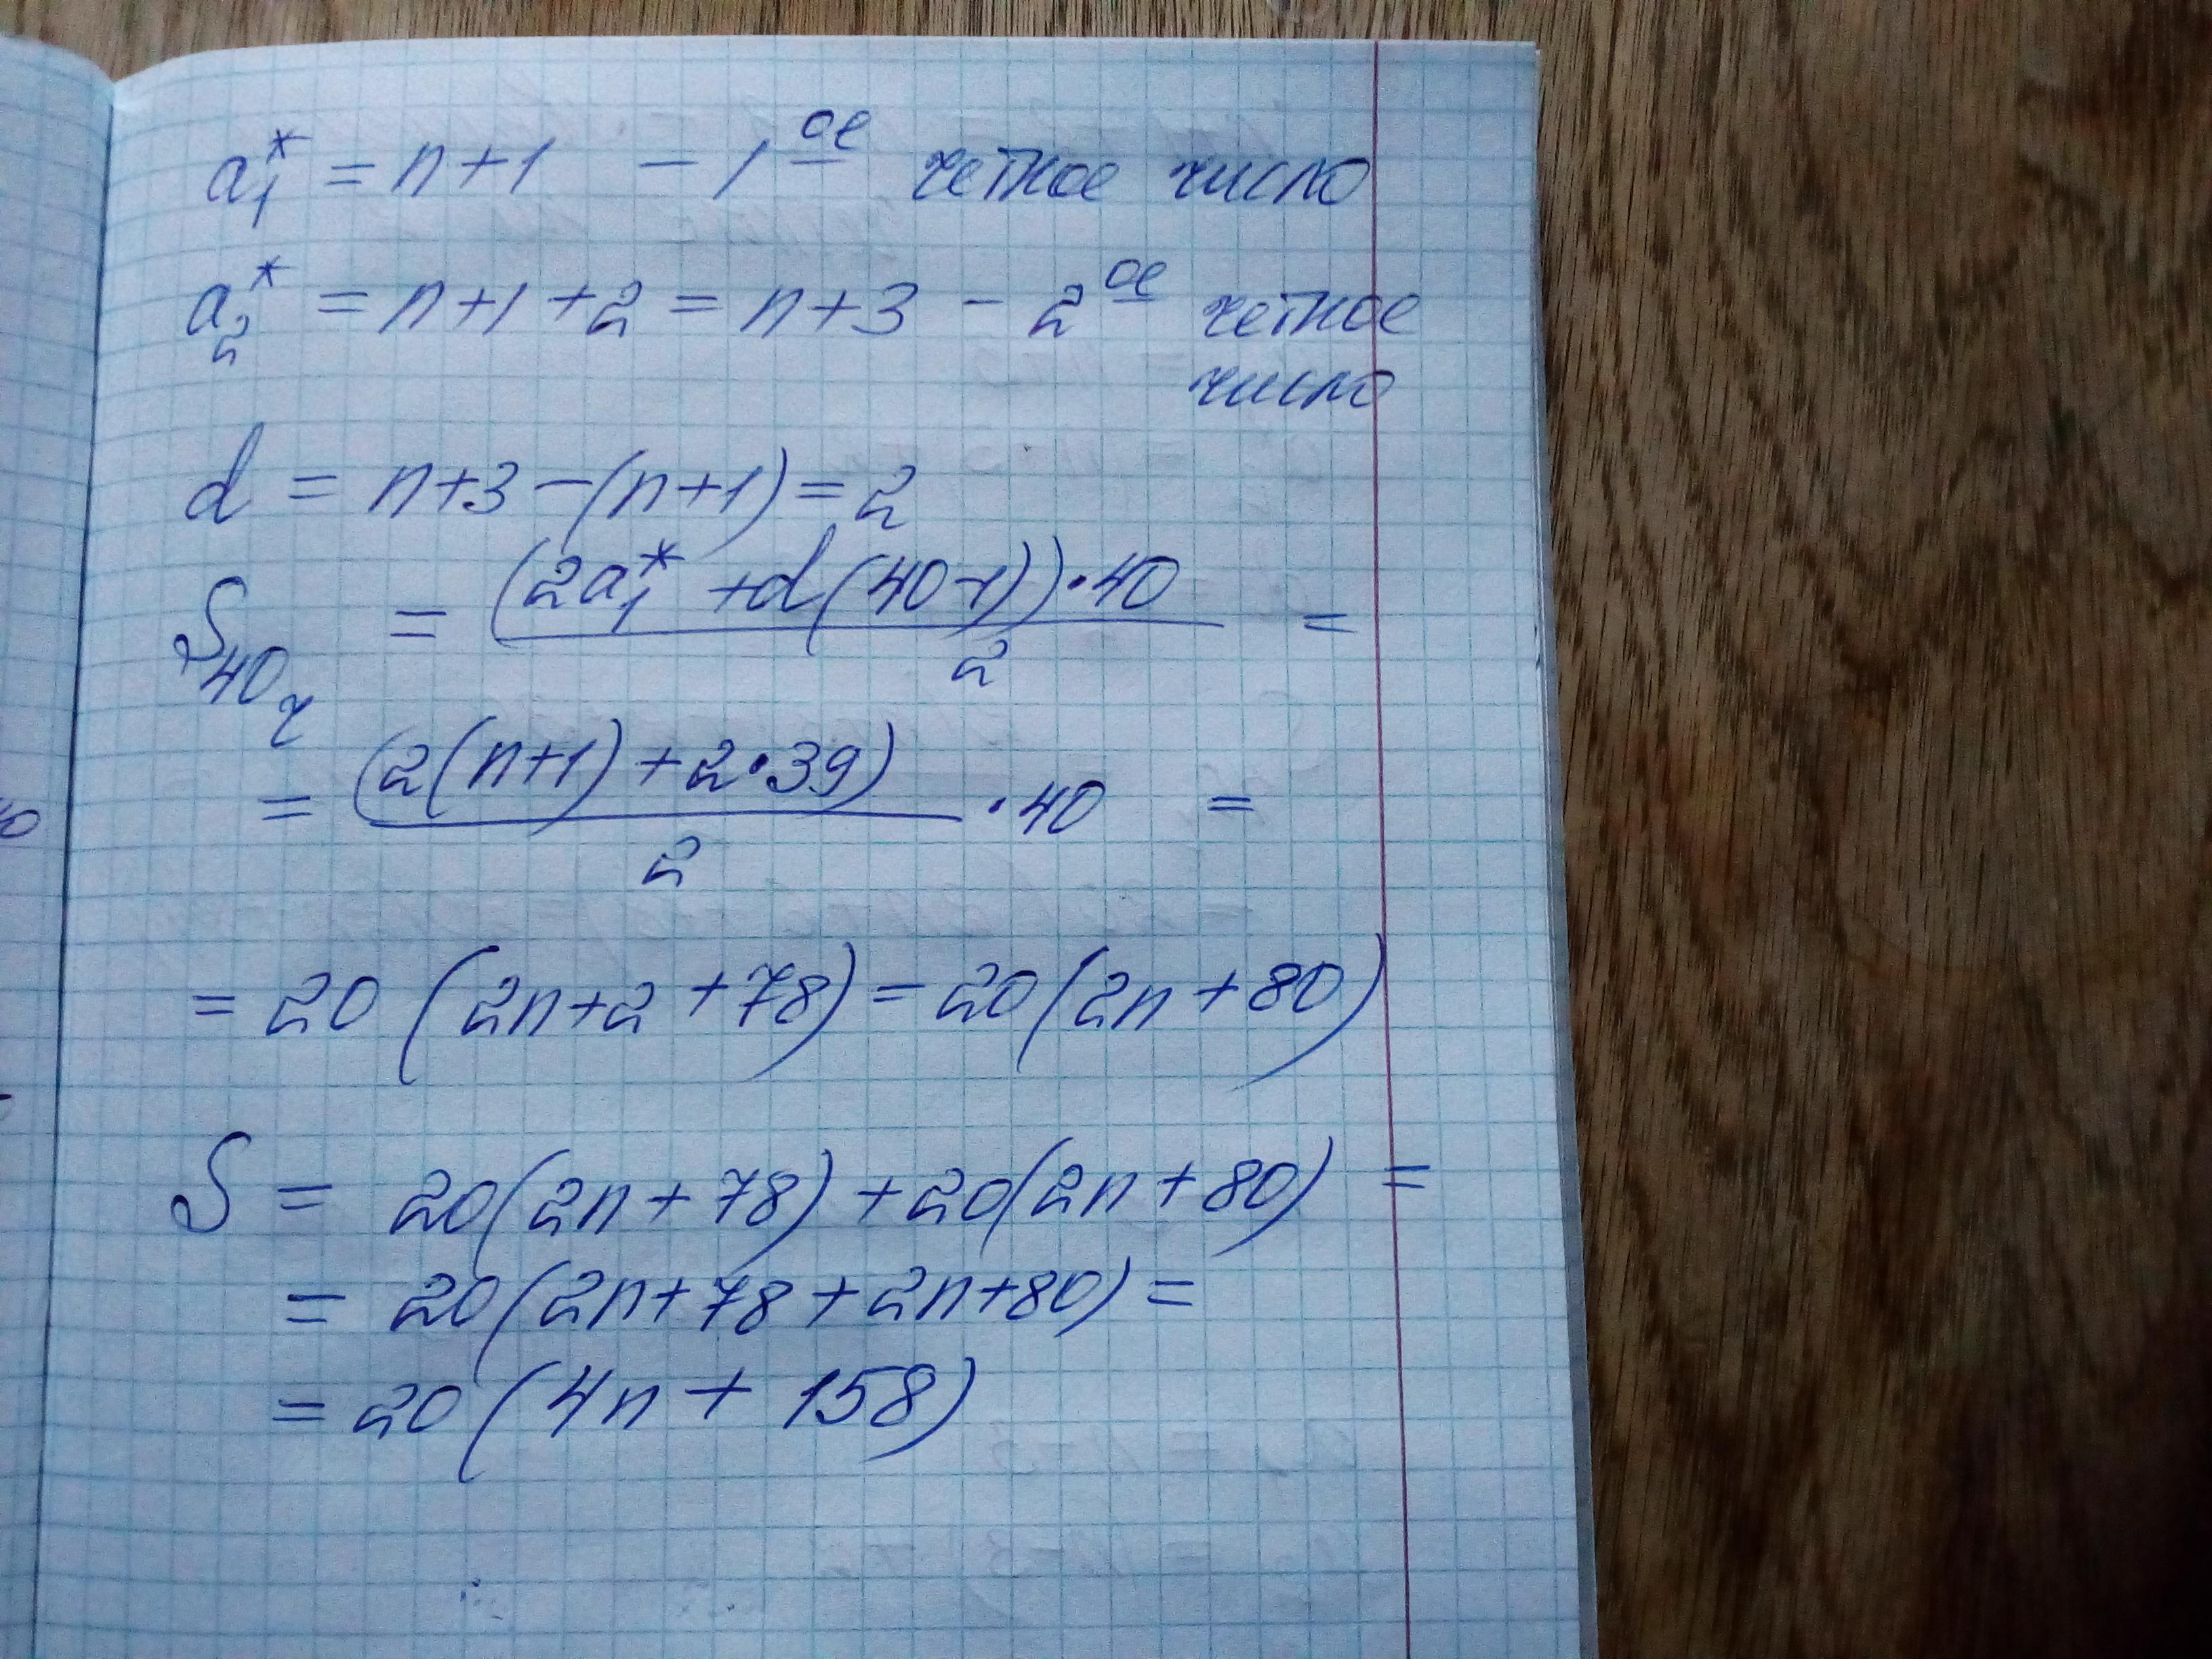 a₁* = n+1 - 1ое четное число
a₂* = n+1+2 = n+3 - 2ое четное
число
d = n+3-(n+1)=2
S₄₀ч = (2a₁* +d(40-1))·40 / 2 =
= (2(n+1)+2·39) / 2 ·40 =
= 20 (2n+2+78)=20(2n+80)
S = 20(2n+78)+20(2n+80) =
= 20(2n+78+2n+80)=
=20(4n+158)